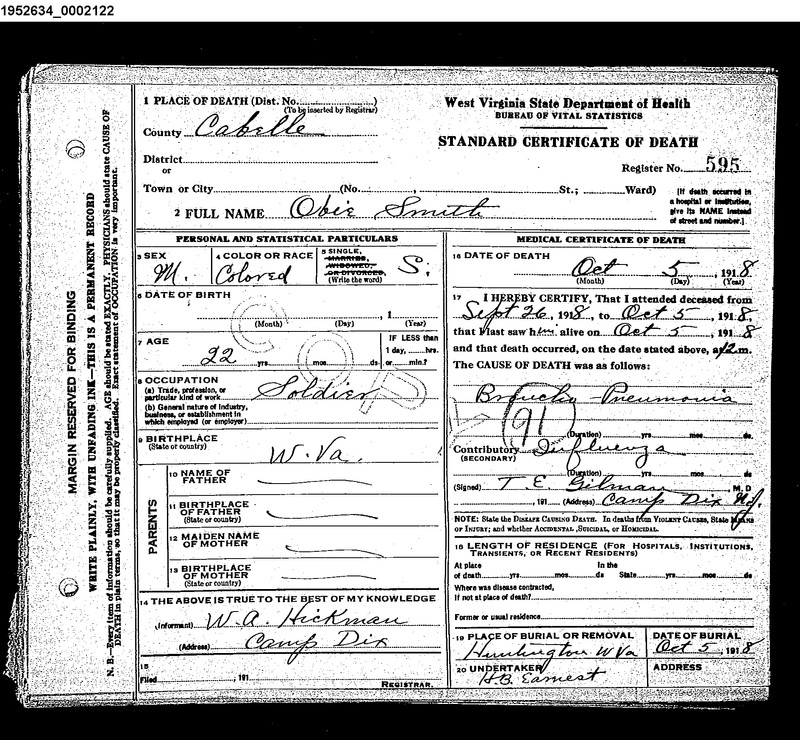 1952634_0002122
1 PLACE OF DEATH (Dist. No.
(To be inserted by Registrar)
County Cabelle
District
or
Town or City (No. , St.; Ward)
2 FULL NAME Obie Smith
West Virginia State Department of Health
BUREAU OF VITAL STATISTICS
STANDARD CERTIFICATE OF DEATH
Register No. 595
[If death occurred in
a hospital or institution,
give its NAME instead
of street and number.]
MARGIN RESERVED FOR BINDING
WRITE PLAINLY, WITH UNFADING INK—THIS IS A PERMANENT RECORD
N. B.—Every item of information should be carefully supplied. AGE should be stated EXACTLY. PHYSICIANS should state CAUSE OF
DEATH in plain terms, so that it may be properly classified. Exact statement of OCCUPATION is very important.
PERSONAL AND STATISTICAL PARTICULARS
3 SEX
M.
4 COLOR OR RACE
Colored
5 SINGLE,
MARRIED,
WIDOWED,
OR DIVORCED,
(Write the word)
S;
6 DATE OF BIRTH
, 1
(Month) (Day) (Year)
7 AGE
22 yrs. mos. ds.
IF LESS than
1 day, hrs.
or min.?
8 OCCUPATION
(a) Trade, profession, or
particular kind of work Soldier
(b) General nature of industry,
business, or establishment in
which employed (or employer)
9 BIRTHPLACE
(State or country)
W. Va.
PARENTS
10 NAME OF
FATHER
11 BIRTHPLACE
OF FATHER
(State or country)
12 MAIDEN NAME
OF MOTHER
13 BIRTHPLACE
OF MOTHER
(State or country)
14 THE ABOVE IS TRUE TO THE BEST OF MY KNOWLEDGE
(Informant) W. A. Hickman
(Address) Camp Dix
15
Filed , 191
REGISTRAR.
COPY
MEDICAL CERTIFICATE OF DEATH
16 DATE OF DEATH
Oct 5, 1918
(Month) (Day) (Year)
17 I HEREBY CERTIFY, That I attended deceased from
Sept 26, 1918, to Oct 5, 1918,
that I last saw him alive on Oct 5, 1918
and that death occurred, on the date stated above, at 12 m.
The CAUSE OF DEATH was as follows:
Broncho-Pneumonia
91
(Duration) yrs. mos. ds.
Contributory Influenza
(SECONDARY)
(Duration) yrs. mos. ds.
(Signed) T. E. Gilman M. D
, 191 (Address) Camp Dix N.J.
NOTE: State the DISEASE CAUSING DEATH. In deaths from VIOLENT CAUSES, State MEANS
OF INJURY; and whether ACCIDENTAL, SUICIDAL, or HOMICIDAL.
18 LENGTH OF RESIDENCE (FOR HOSPITALS, INSTITUTIONS,
TRANSIENTS, OR RECENT RESIDENTS)
At place In the
of death yrs. mos. ds State yrs. mos. ds
Where was disease contracted,
if not at place of death?
Former or usual residence
19 PLACE OF BURIAL OR REMOVAL
Huntington W Va
DATE OF BURIAL
Oct 5, 1918
20 UNDERTAKER
H.B. Earnest
ADDRESS